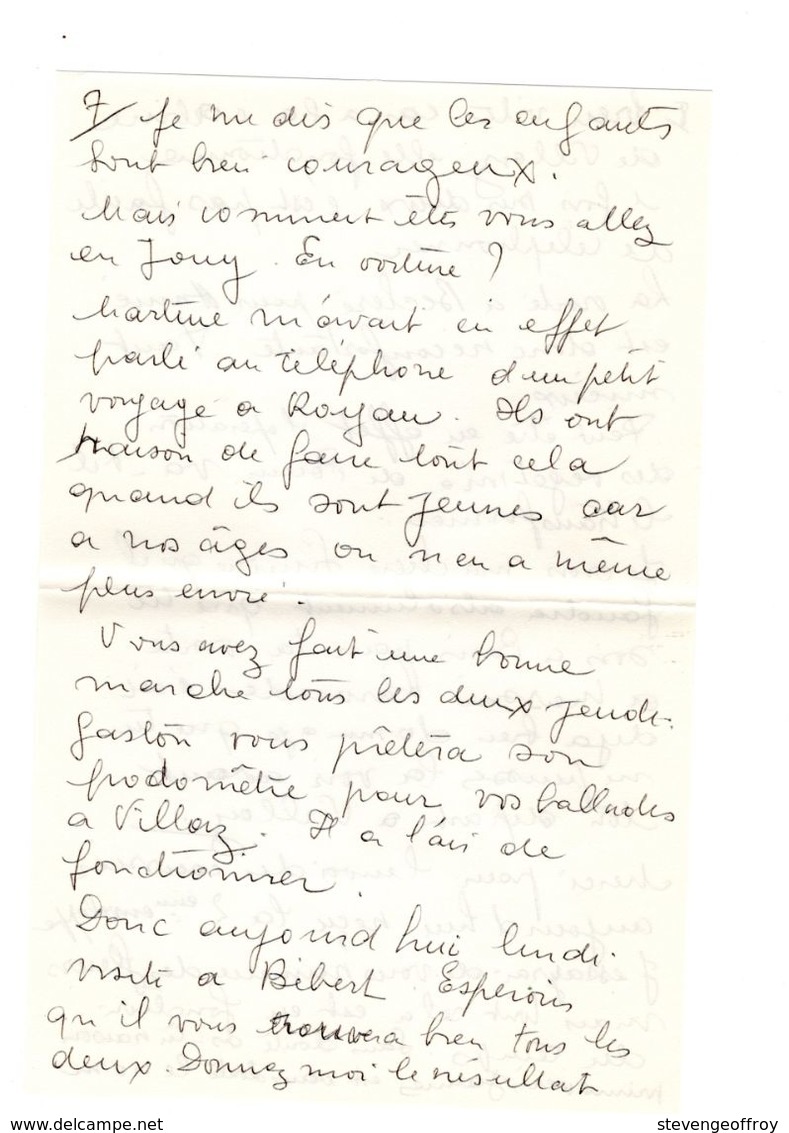 7/ Je me dis que les enfants
sont bien courageux.
Mais comment êtes vous allez
en Jouy. En voiture ?
Martine m'avait en effet
parlé au téléphone d'un petit
voyage a Royan. Ils ont
raison de faire tout cela
quand ils sont jeunes car
a nos âges on n'en a même
plus envie.
Vous avez fait une bonne
marche tous les deux jeudi.
Gaston vous prêtera son
podomêtre pour vos ballades
a Villaz. Il a l'air de
fonctionner.
Donc aujourd'hui lundi.
visite a Bébert. Espérons
qu'il vous trouvera bien tous les
deux. Donnez moi le résultat
stevengeoffroy